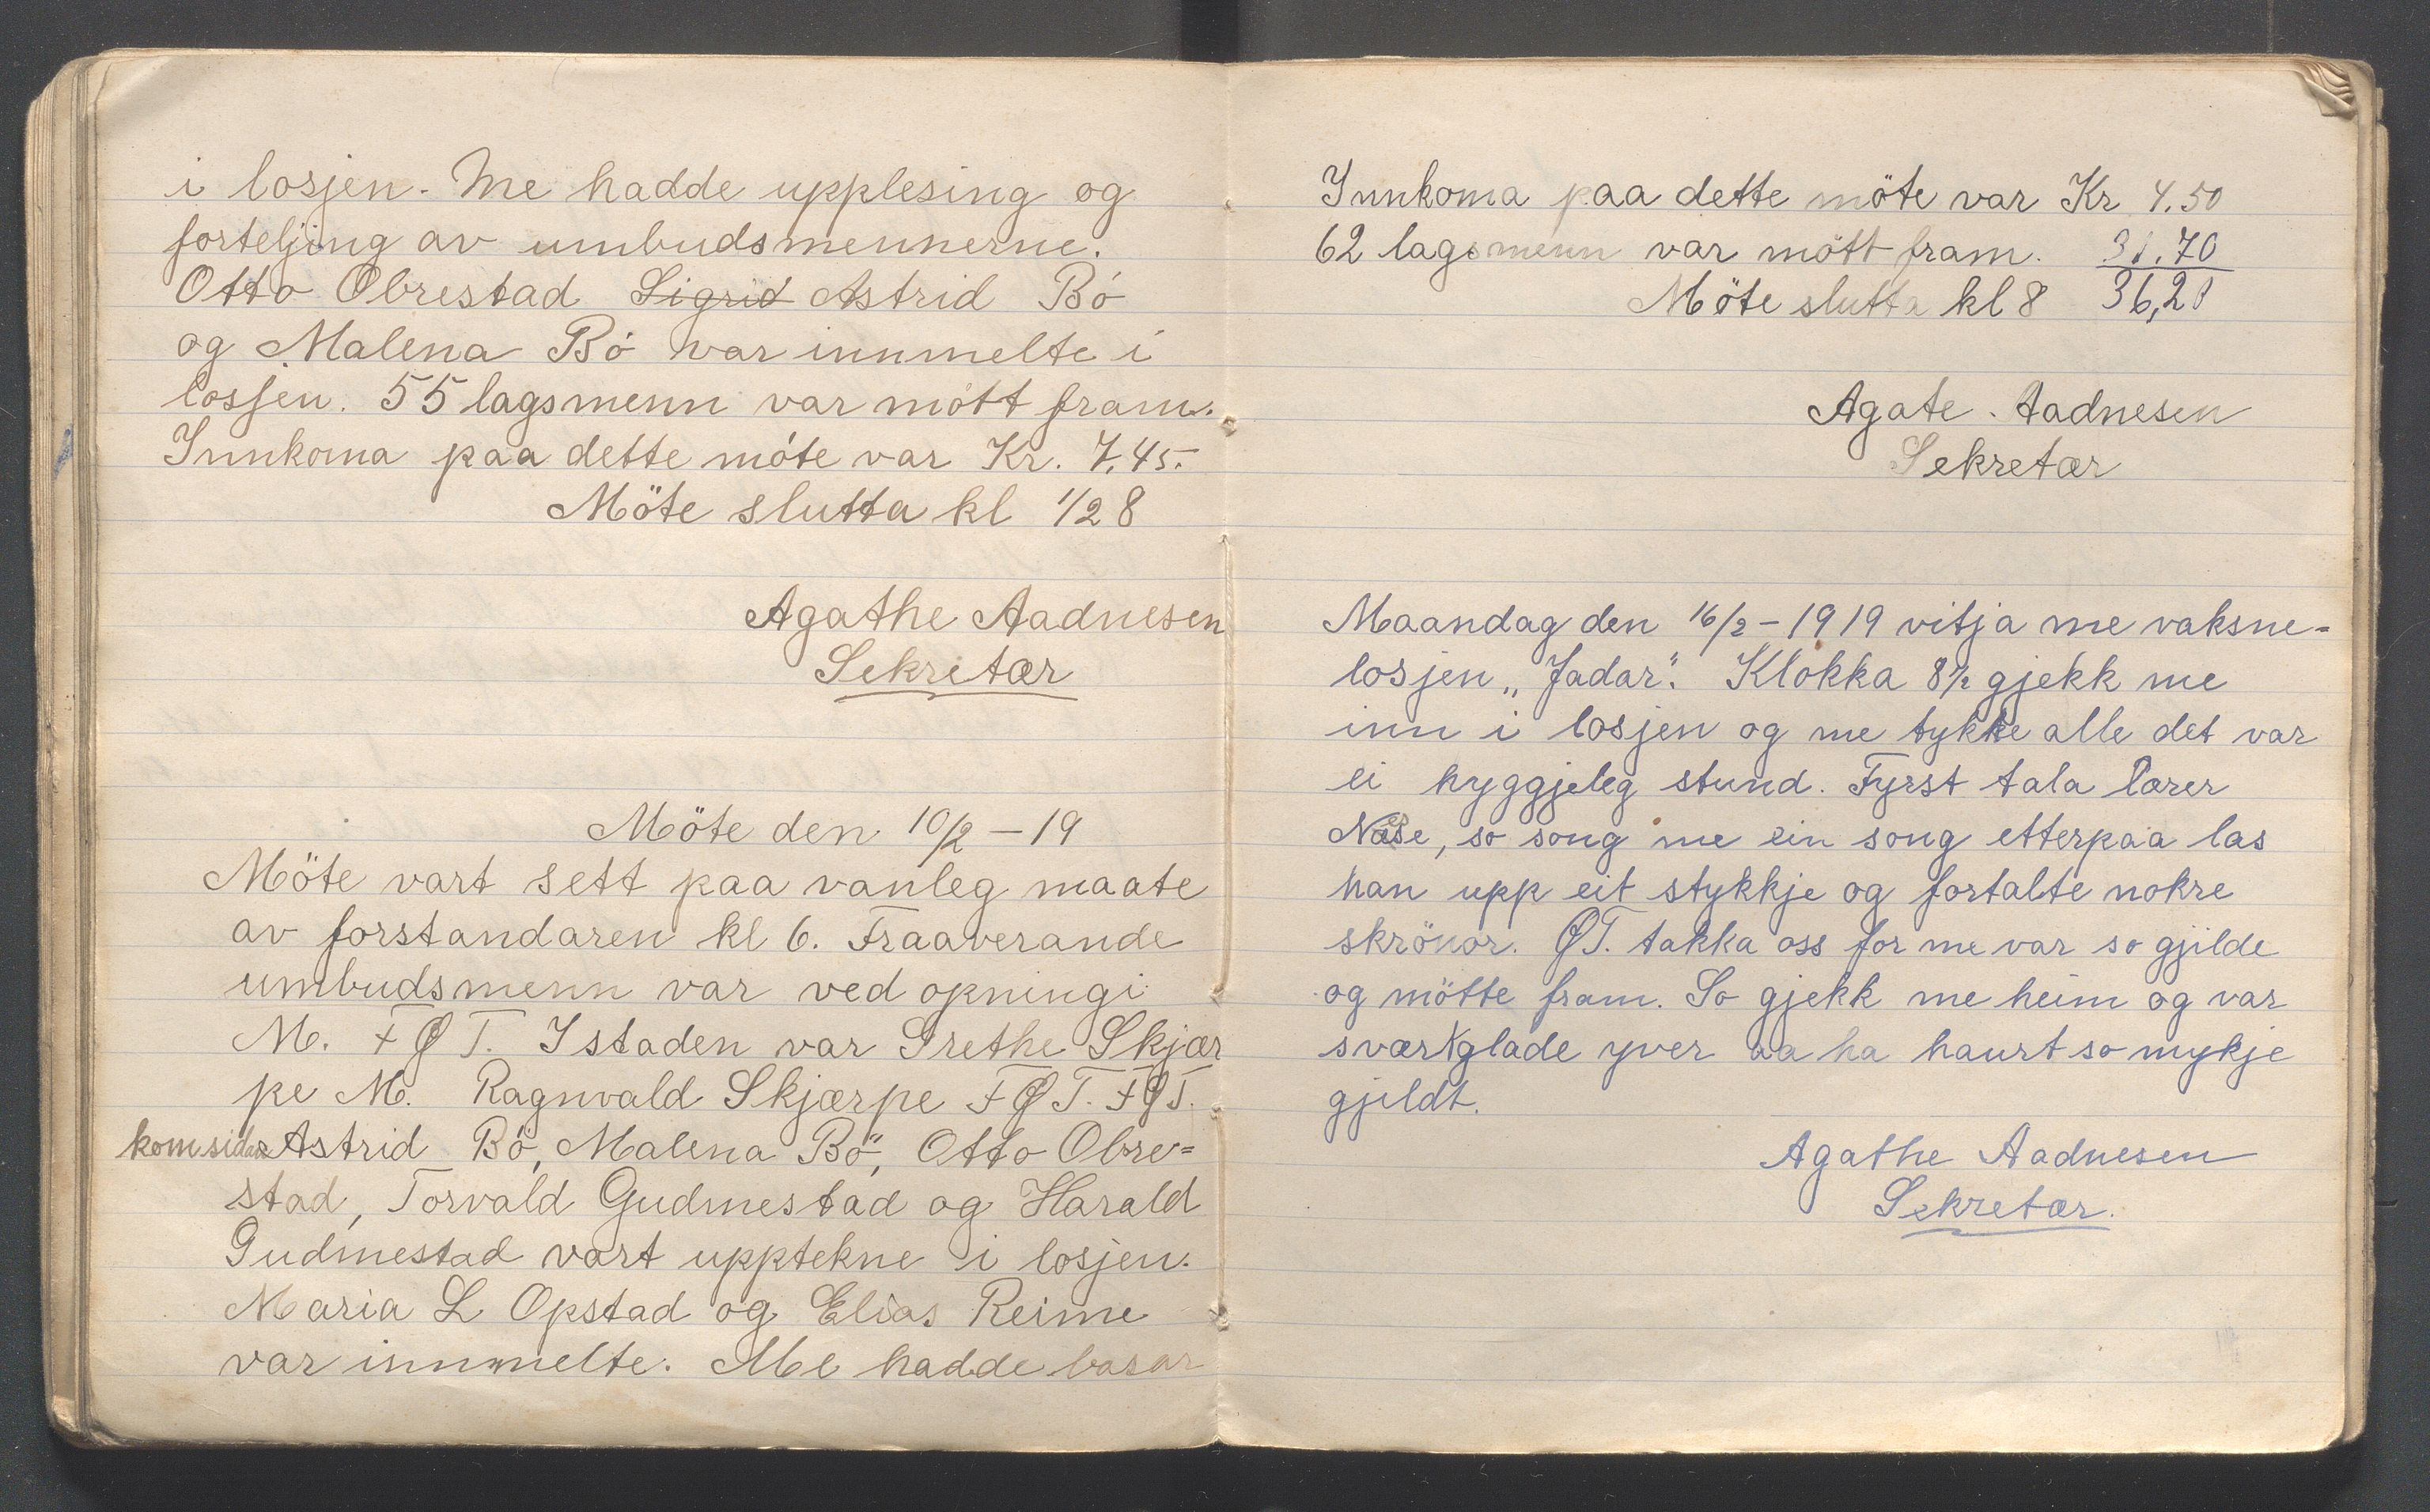 i losjen. Me hadde upplesing og
forteljing av umbudsmennerne.
Otto Obrestad Sigrid Astrid Bö
og Malena Bö var innmelte i
losjen. 55 lagsmenn var mött fram.
Innkoma paa dette möte var Kr. 7.45.
Möte slutta kl 1/2 8
Agathe Aadnesen
Sekretær
Möte den 10/2 – 19
Möte vart sett paa vanleg maate
av forstandaren kl 6. Fraaverande
umbudsmenn var ved opningi
M. F Ø T. I staden var Grethe Skjær
pe M. Ragnvald Skjærpe F Ø T. F Ø T.
kom sidan Astrid Bö, Malena Bö, Otto Obre=
stad, Torvald Gudmestad og Harald
Gudmestad vart upptekne i losjen.
Maria L Opstad og Elias Reime
var innmelte. Me hadde basar
Innkoma paa dette möte var Kr 4.50
62 lagsmenn var mött fram. 31.70
Möte slutta kl 8 36,20
Agate Aadnesen
Sekretær
Maandag den 16/2 – 1919 vitja me vaksne-
losjen „Jadar“. Klokka 8½ gjekk me
inn i losjen og me tykke alle det var
ei hyggjeleg stund. Fyrst tala lærer
so song me ein song etterpaa las
han upp eit stykkje og fortalte nokre
skrönor. ØT. takka oss for me var so gjilde
og mötte fram. So gjekk me heim og var
svært glade yver aa ha haurt so mykje
gjildt.
Agathe Aadnesen
Sekretær.